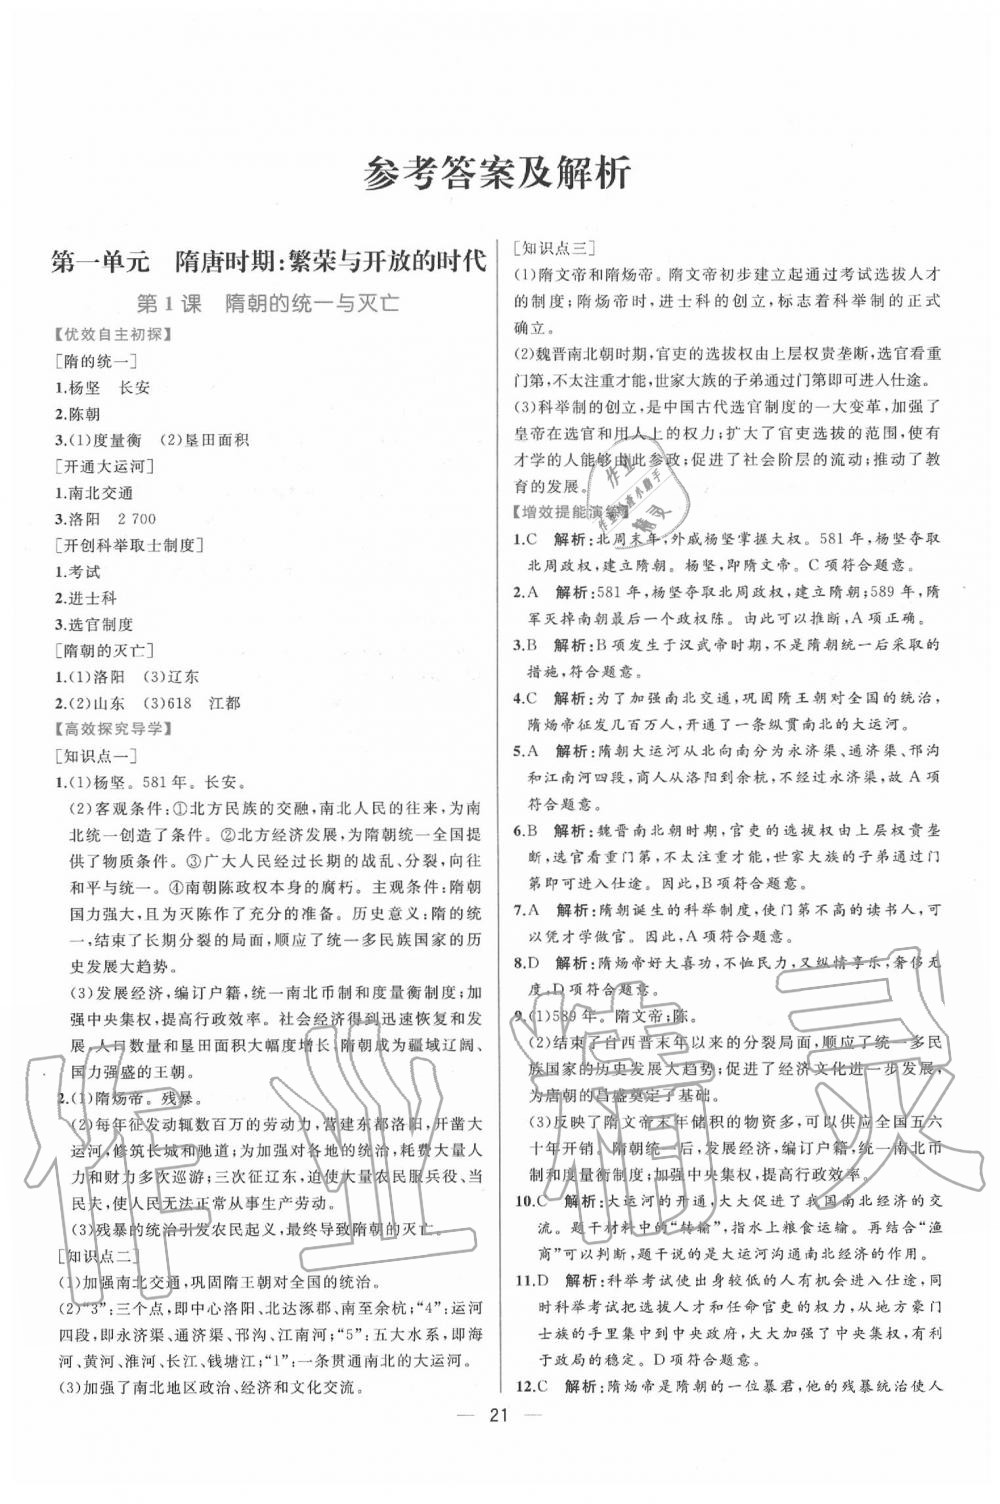 参考答案及解析
第一单元　隋唐时期:繁荣与开放的时代
第1课　隋朝的统一与灭亡
【优效自主初探】
[隋的统一]
1.杨坚　长安
2.陈朝
3.(1)度量衡　(2)垦田面积
[开通大运河]
1.南北交通
3.洛阳　2 700
[开创科举取士制度]
1.考试
2.进士科
3.选官制度
[隋朝的灭亡]
1.(1)洛阳　(3)辽东
2.(2)山东　(3)618　江都
【高效探究导学】
[知识点一]
1.(1)杨坚。581年。长安。
(2)客观条件:①北方民族的交融,南北人民的往来,为南
北统一创造了条件。②北方经济发展,为隋朝统一全国提
供了物质条件。③广大人民经过长期的战乱、分裂,向往
和平与统一。④南朝陈政权本身的腐朽。主观条件:隋朝
国力强大,且为灭陈作了充分的准备。历史意义:隋的统
一,结束了长期分裂的局面,顺应了统一多民族国家的历
史发展大趋势。
(3)发展经济,编订户籍,统一南北币制和度量衡制度;加
强中央集权,提高行政效率。社会经济得到迅速恢复和发
展,人口数量和垦田面积大幅增长,隋朝成为疆域辽阔、
国力强盛的王朝。
2.(1)隋炀帝。残暴。
(2)每年征发动辄数百万的劳动力,营建东都洛阳,开凿大
运河,修筑长城和驰道;为加强对各地的统治,耗费大量人
力和财力多次巡游;三次征辽东,迫使大量农民服兵役、当
民夫,使人民无法正常从事生产劳动。
(3)残暴的统治引发农民起义,最终导致隋朝的灭亡。
[知识点二]
(1)加强南北交通,巩固隋王朝对全国的统治。
(2)“3”:三个点,即中心洛阳、北达涿郡、南至余杭;“4”:运河
四段,即永济渠、通济渠、邗沟、江南河;“5”:五大水系,即海
河、黄河、淮河、长江、钱塘江;“1”:一条贯通南北的大运河。
(3)加强了南北地区政治、经济和文化交流。
[知识点三]
(1)隋文帝和隋炀帝。隋文帝初步建立起通过考试选拔人才
的制度;隋炀帝时,进士科的创立,标志着科举制的正式
确立。
(2)魏晋南北朝时期,官吏的选拔权由上层权贵垄断,选官看重
门第,不太注重才能,世家大族的子弟通过门第即可进入仕途。
(3)科举制的创立,是中国古代选官制度的一大变革,加强了
皇帝在选官和用人上的权力;扩大了官吏选拔的范围,使有
才学的人能够由此参政;促进了社会阶层的流动;推动了教
育的发展。
【增效提能演练】
1.C　解析:北周末年,外戚杨坚掌握大权。581年,杨坚夺取
北周政权,建立隋朝。杨坚,即隋文帝。C项符合题意。
2.A　解析:581年,杨坚夺取北周政权,建立隋朝;589年,隋
军灭掉南朝最后一个政权陈。由此可以推断,A项正确。
3.B　解析:B项发生于汉武帝时期,不是隋朝统一后采取的
措施,符合题意。
4.C　解析:为了加强南北交通,巩固隋王朝对全国的统治,
隋炀帝征发几百万人,开通了一条纵贯南北的大运河。
5.A　解析:隋朝大运河从北向南分为永济渠、通济渠、邗沟
和江南河四段,商人从洛阳到余杭,不经过永济渠,故A项
符合题意。
6.B　解析:魏晋南北朝时期,官吏的选拔权由上层权贵垄
断,选官看重门第,不太注重才能,世家大族的子弟通过门
第即可进入仕途。因此,B项符合题意。
7.A　解析:隋朝诞生的科举制度,使门第不高的读书人,可
以凭才学做官。因此,A项符合题意。
8.D　解析:隋炀帝好大喜功,不恤民力,又纵情享乐,奢侈无
度,D项符合题意。
9.(1)589年。隋文帝;陈。
(2)结束了自西晋末年以来的分裂局面,顺应了统一多民
族国家的历史发展大趋势;促进了经济文化进一步发展;
为唐朝的昌盛奠定了基础。
(3)反映了隋文帝末年储积的物资多,可以供应全国五六
十年开销。隋朝统一后,发展经济,编订户籍,统一南北币
制和度量衡制度;加强中央集权,提高行政效率。
10.C　解析:大运河的开通,大大促进了我国南北经济的交
流。题干材料中的“转输”,指水上粮食运输。再结合“渔
商”可以判断,题干说的是大运河沟通南北经济的作用。
11.D　解析:科举考试使出身较低的人有机会进入仕途,同
时科举考试把选拔人才和任命官吏的权力,从地方豪门
士族的手里集中到中央政府,大大加强了中央集权,有利
于政局的稳定。D项符合题意。
12.C　解析:隋炀帝是隋朝的一位暴君,他的残暴统治使人
— 21 —
作业精灵